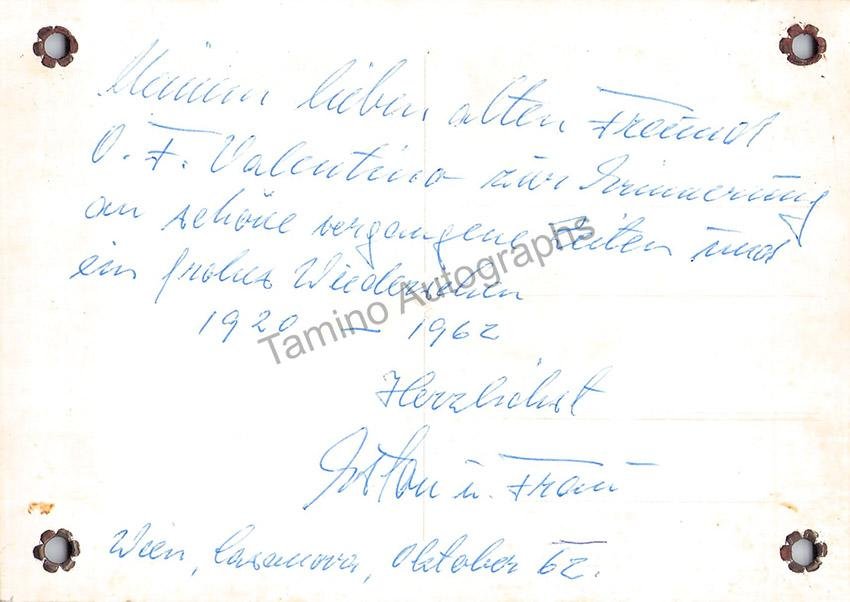 Meinem lieben alten Freund
O. F. Valentino zur Erinnerung
an schöne vergangene Zeiten und
ein frohes Wiedersehen
1920 — 1962
Herzlichst
u. Frau
Wien, Casanova, Oktober 62.
Tamino Autographs